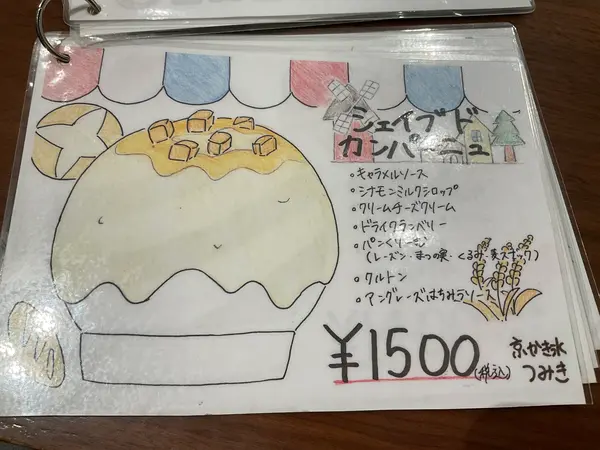 シェイブド
カンパーニュ
・キャラメルソース
・シナモンミルクシロップ
・クリームチーズクリーム
・ドライクランベリー
(レーズン・まつの実・くるみ・
・クルトン
・アングレーズはちみつソース
¥1500(税込)
京かき氷
つみき